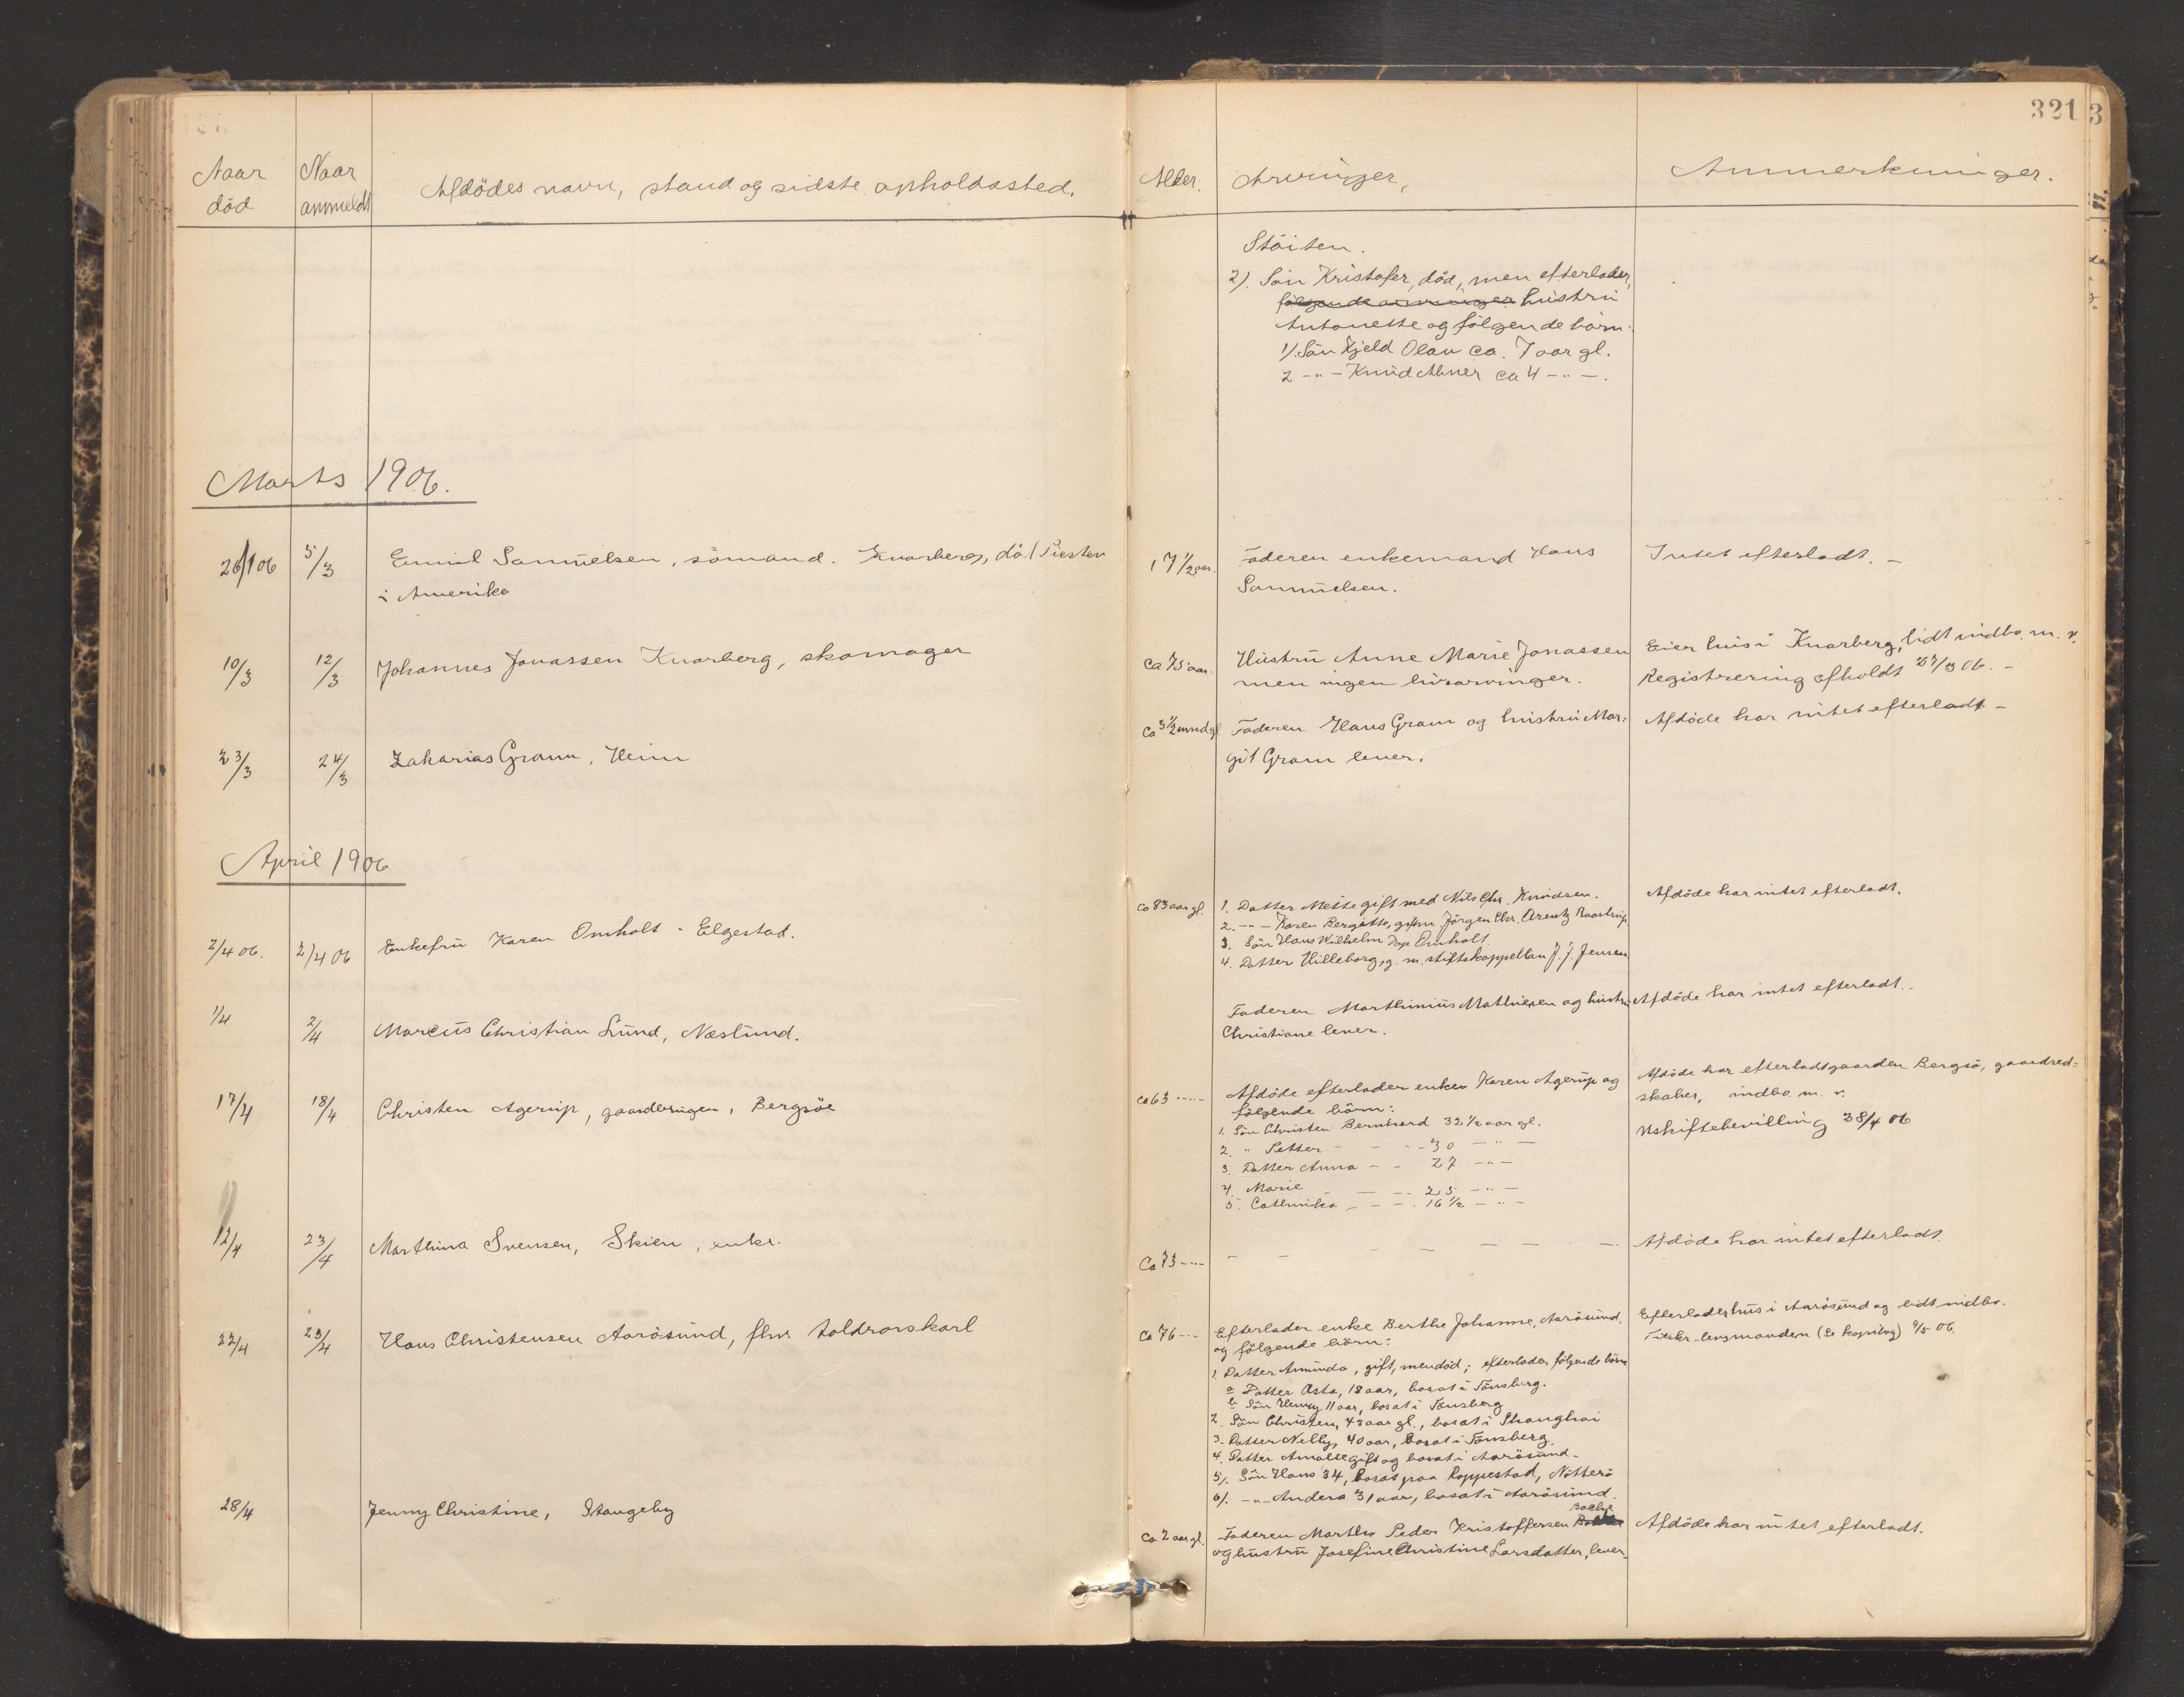 321
Naar død
Naar anmeldt
Afdödes navn, stand og sidste opholdssted.
Alder.
Arvinger,
Anmerkninger.
Stöiten.
2). Sön Kristofer, död, men efterlader,
følgende arvinger hustru
Antonette og følgende börn.
1). Sön Kjeld Olav ca. 7 aar gl.
2 -"- Knud Abner ca 4 -"-.
Marts 1906.
26/1 06 5/3 Emil Samuelsen, sömand. Knarberg, död
i Amerika
17 1/2 aar. Faderen enkemand Hans
Samuelsen.
Intet efterladt. -
10/3 12/3 Johannes Jonassen Knarberg, skomager
ca 75 aar. Hustru Anne Marie Jonassen
men ingen livsarvinger.
Eier hus i Knarberg, lidt indbo. m. v.
Registrering afholdt 27/3 06. -
23/3 24/3 Zakarias Gram, Heim
ca 3 1/2 mnd gl Faderen Hans Gram og hustru Mar-
git Gram lever.
Afdöde har intet efterladt -
April 1906
2/4 06. 2/4 06 Enkefru Karen Omholt - Elgestad.
ca 83 aar gl. 1. Datter Mette gift med Nils Chr. Knudsen.
2. -"- Karen Bergitte, gift m. Jörgen Chr. Arentz Raastrup.
3. Sön Hans Wilhelm Omholt.
4. Datter Hilleborg, g. m. stiftskappellan J. J. Jensen
Afdöde har intet efterladt.
1/4 2/4 Marcus Christian Lund, Næslund.
Faderen Marthinius Mathisen og hustru
Christiane lever.
Afdöde har intet efterladt.
17/4 18/4 Christen Agerup, gaardbruger, Bergsöe
ca 63 -"- Afdöde efterlader enken Karen Agerup og
følgende börn:
1. Sön Christen Bernhard 32 1/2 aar gl.
2. " Petter - - 30 -"-
3. Datter Anna - - 27 -"-
4. Marie - - 23 -"-
5. Cathinka - - 16 1/2 -"-
Afdöde har efterladt gaarden Bergsö, gaardred-
skaber, indbo. m. v.
Uskiftebevilling 28/4 06
12/4 23/4 Marthina Svensen, Skien, enke.
ca 73 -"- - - - - - - -
Afdöde har intet efterladt.
22/4 23/4 Hans Christensen Aarösund, fhv. toldrorskarl
ca 76 -"- Efterlader enke Berthe Johanne, Aarösund.
og følgende börn:
1. Datter Aminda, gift, men död; efterlader følgende börn
a Datter Asta, 18 aar, bosat i Tönsberg.
b Sön Henry 11 aar, bosat i Tönsberg
2. Sön Christen, 43 aar gl., bosat i Shanghai
3. Datter Nelly, 40 aar, bosat i Tönsberg.
4. Datter Amalie gift og bosat i Aarösund.
5/. Sön Hans 34, bosat paa Roppestad, Nötterö
6/. -"- Anders 31 aar, bosat i Aarösund.
Efterlader hus i Aarösund og lidt indbo.
lensmanden (Se kopibog) 9/5 06.
28/4 Jenny Christine, Stangeby
ca 2 aar gl. Faderen Marthin Peder Kristoffersen Bache
og hustru Josefine Christine Larsdatter, lever.
Afdöde har intet efterladt.